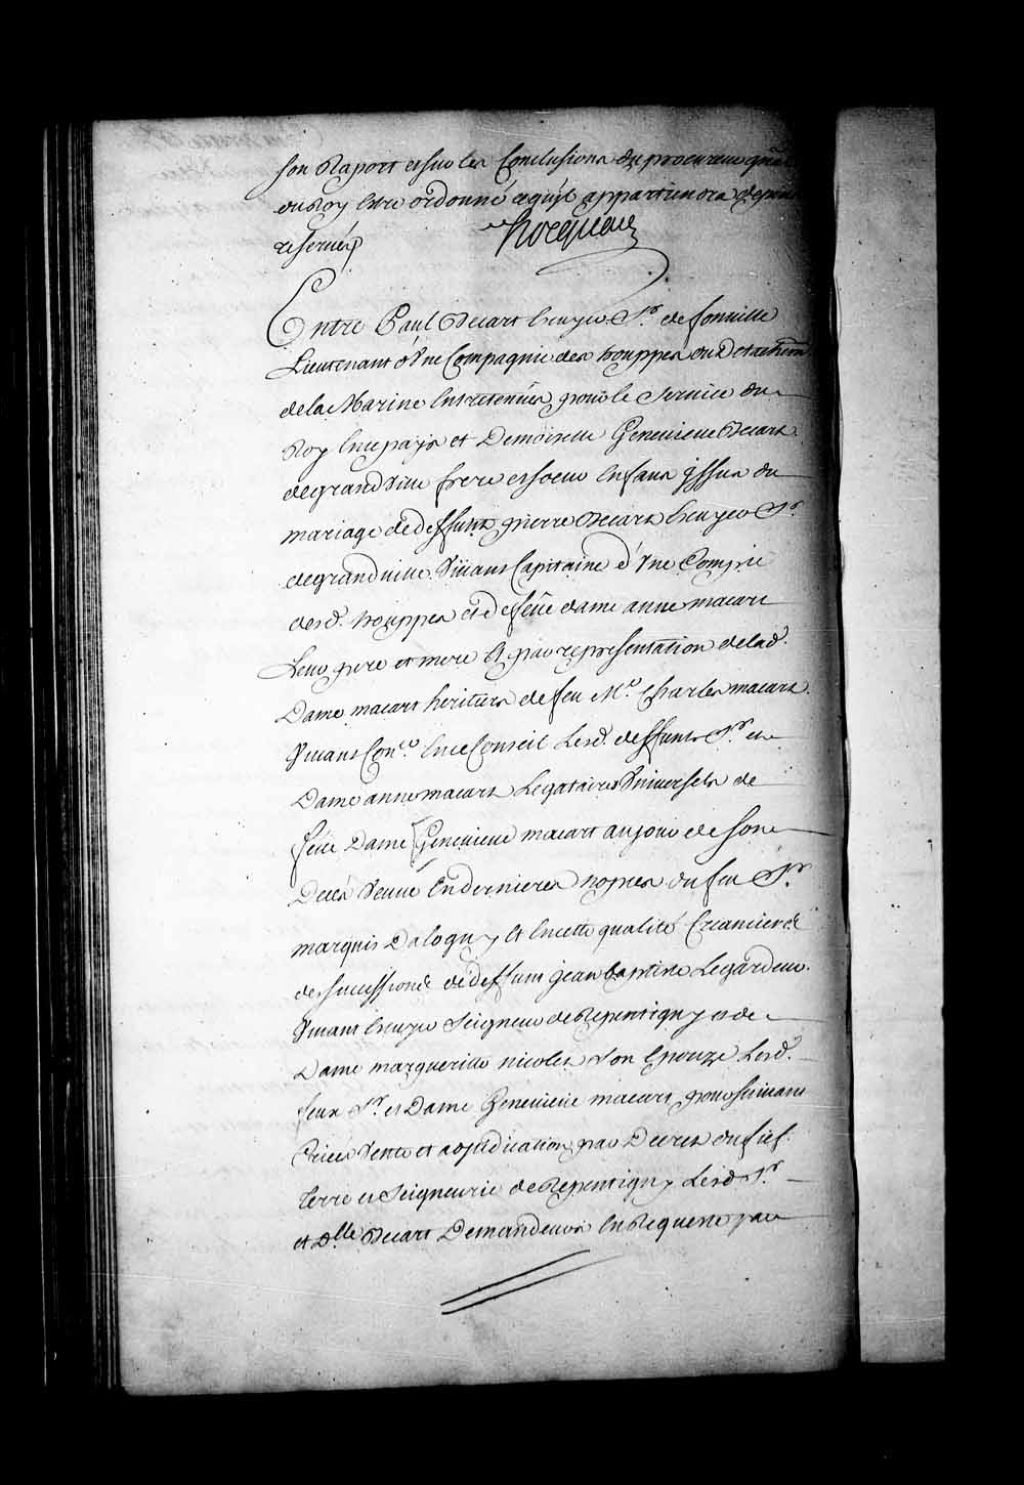 son Raport et sur les Conclusions du procureur gñal
du Roy Estre ordonné ce qu'il appartiendra depens
reservés
hocquart
Entre Paul Becart Ecuyer Sr. de fonville
Lieutenant d'Une Compagnie des trouppes du Detachem
de la Marine Entretenues pour le Service du
Roy En ce pays et Demoiselle Genevieve Becart
de grand Ville frere et soeur Enfans issus du
mariage de deffunt pierre Becart Ecuyer Sr.
de grandville Vivant Capitaine d'Une Compie
desd. trouppes et de feüe dame anne macart
Leur pere et mere Et par representation de lad.
Dame macart heritiers de feu Me. Charles macart
Vivant Coner. En ce Conseil Lesd. deffunts Sr. et
Dame anne macart Legataires Universels de
feüe Dame Genevieve macart au jour de son
Decés Veuve En dernieres nopces du feu Sr.
marquis Dalogny Et En cette qualité Creanciere
des successions de deffunt jean baptiste Legardeur
Vivant Ecuyer Seigneur de Repentigny et de
Dame marguerite nicolet son Epouze Lesd.
feux Sr. et Dame Genevieve macart poursuivant
Criées Vente et adjudication par Decret du fief
Terre et Seigneurie de Repentigny Lesd. Sr.
et Dlle Becart Demandeurs En Requeste par